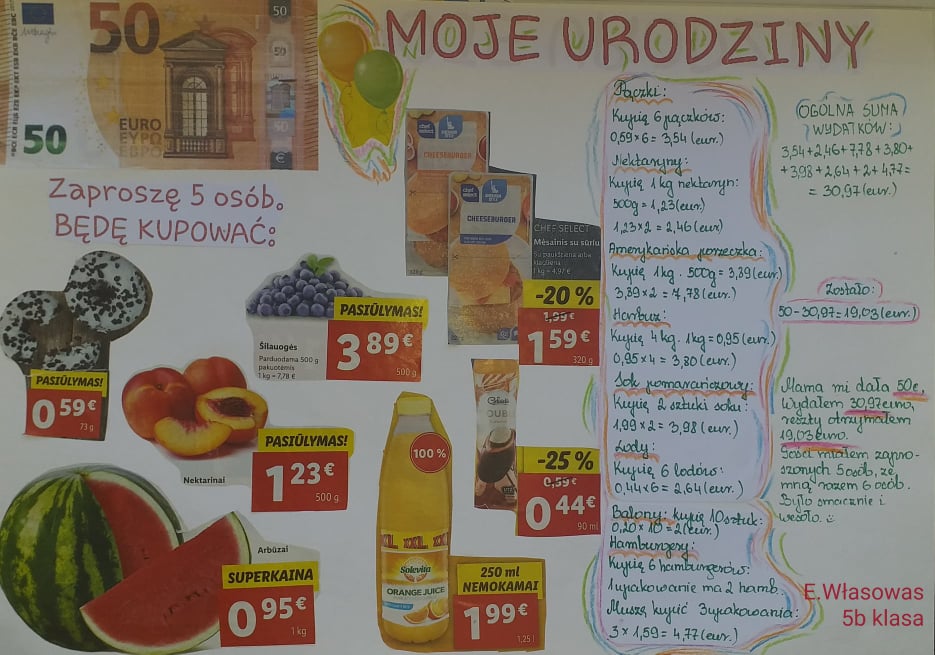 50
50
50
50
50
EURO
ΕΥΡΩ
ЕВРО
MOJE URODZINY
Zaproszę 5 osób.
BĘDĘ KUPOWAĆ:
PASIŪLYMAS!
0 59 €
73 g
Šilauogės
Parduodama 500 g
pakuotėmis
1 kg = 7,78 €
PASIŪLYMAS!
3 89 €
500 g
Nektarinai
PASIŪLYMAS!
1 23 €
500 g
Arbūzai
SUPERKAINA
0 95 €
1 kg
chef select
CHEESEBURGER
chef select
CHEESEBURGER
CHEF SELECT
Mėsainis su sūriu
Su paukštiena arba
kiauliena
1 kg = 4,97 €
-20 %
1,99 €
1 59 €
320 g
DOUB
-25 %
0,59 €
0 44 €
90 ml
100 %
XXL XXL XXL
Solevita
ORANGE JUICE
250 ml
NEMOKAMAI
1 99 €
1,25 l
Pączki:
Kupię 6 pączków:
0,59 x 6 = 3,54 (eur.)
Nektaryny:
Kupię 1 kg nektaryn:
500g = 1,23 (eur.)
1,23 x 2 = 2,46 (eur)
Amerykańska porzeczka:
Kupię 1kg. 500g = 3,89 (eur)
3,89 x 2 = 7,78 (eur.)
Harbuz:
Kupię 4 kg. 1kg = 0,95 (eur.)
0,95 x 4 = 3,80 (eur.)
Sok pomarańczowy:
Kupię 2 sztuki soku:
1,99 x 2 = 3,98 (eur.)
Lody:
Kupię 6 lodów:
0,44 x 6 = 2,64 (eur.)
Balony: kupię 10 sztuk:
0,20 x 10 = 2 (eur.)
Hamburgery:
Kupię 6 hamburgerów:
1 upakowanie ma 2 hamb.
Muszę kupić 3 upakowania:
3 x 1,59 = 4,77 (eur.)
OGÓLNA SUMA
WYDATKÓW:
3,54 + 2,46 + 7,78 + 3,80 +
+ 3,98 + 2,64 + 2 + 4,77 =
= 30,97 (eur.)
Zostało:
50 - 30,97 = 19,03 (eur.)
Mama mi dała 50 €,
Wydałem 30,97 euro,
reszty otrzymałem
19,03 euro.
Gości miałem zapro-
szonych 5 osób, ze
mną razem 6 osób.
Było smacznie i
wesoło. ☺
E.Własowas
5b klasa